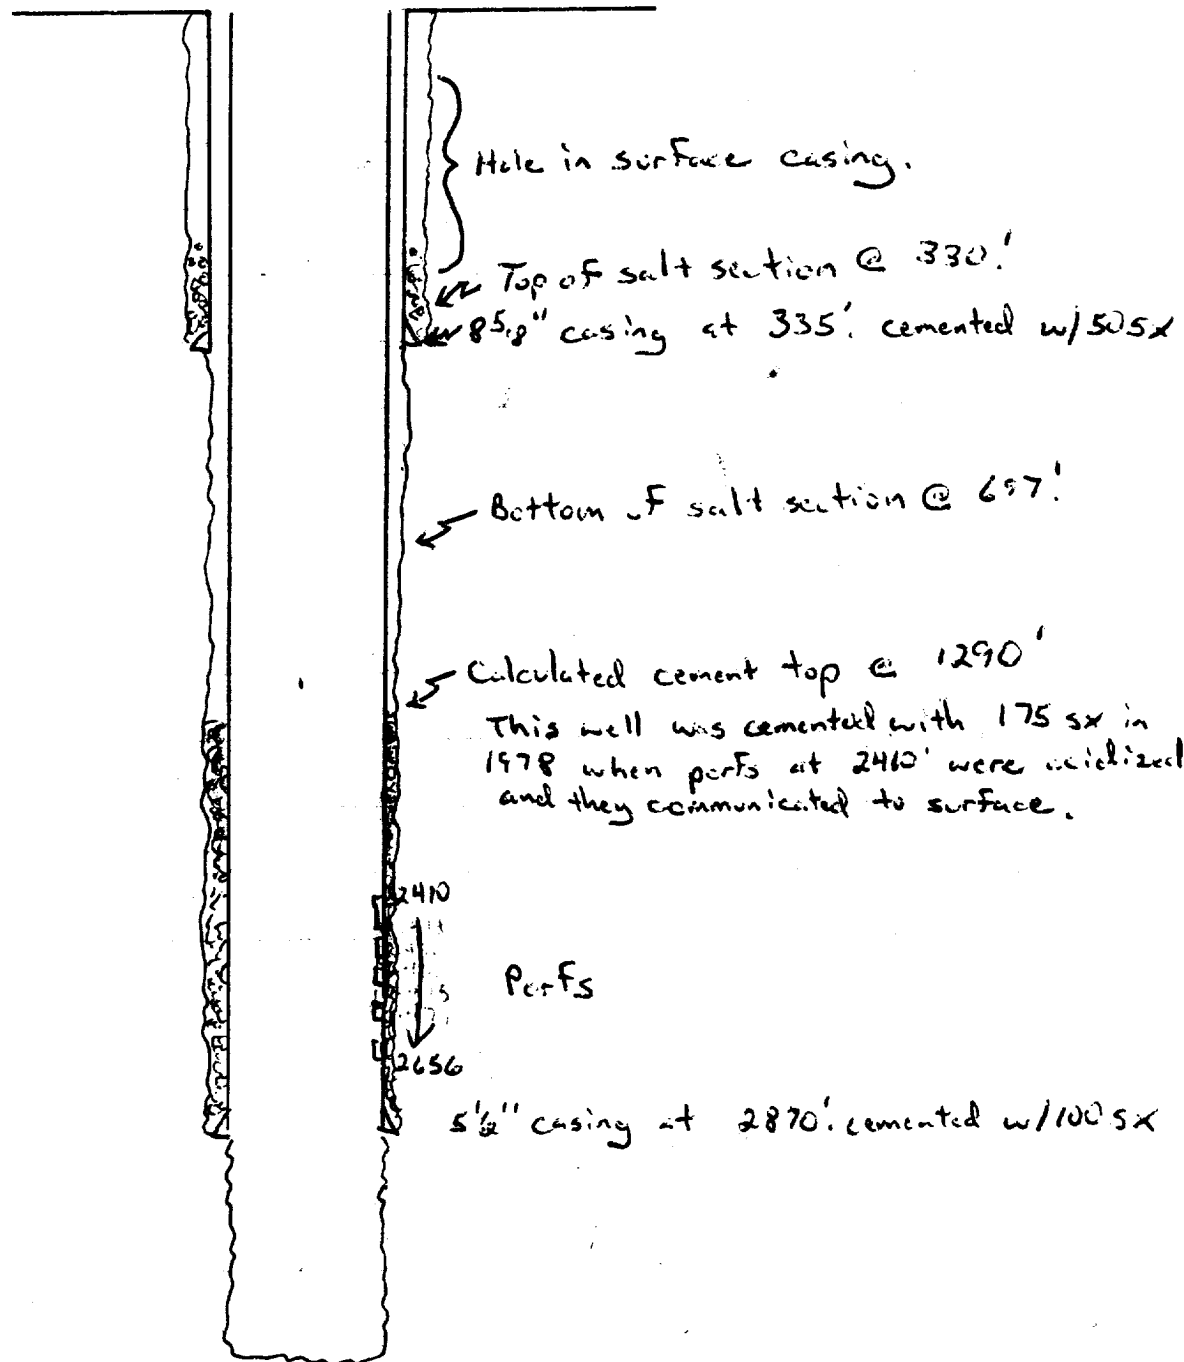 Hole in surface casing.
Top of salt section @ 330'.
8 5/8" casing at 335'. cemented w/50 sx
Bottom of salt section @ 697'.
Calculated cement top @ 1290'
This well was cemented with 175 sx in
1978 when perfs at 2410' were acidized
and they communicated to surface.
2410
Perfs
2656
5 1/2" casing at 2870'. cemented w/100 sx